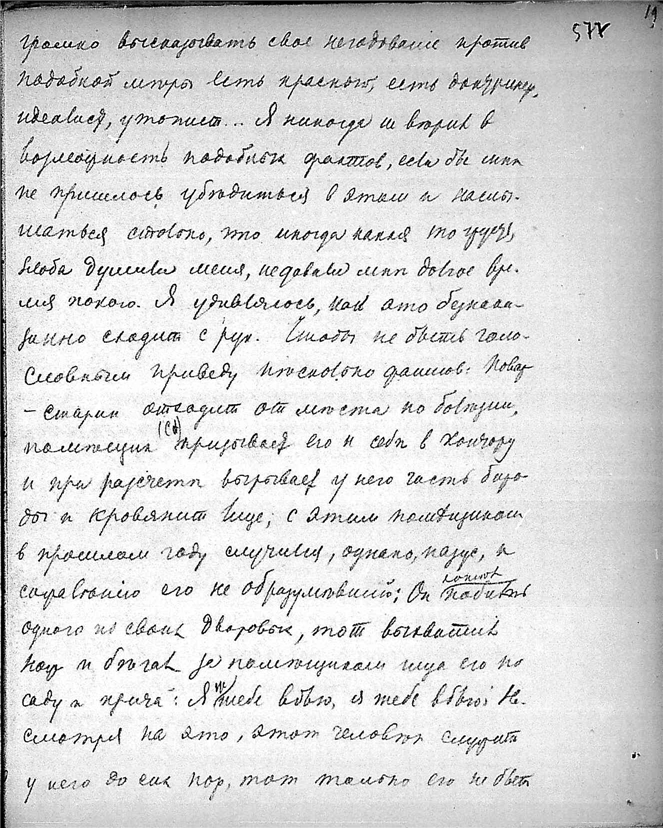 19
577
громко высказывать свое негодованіе против
подобной мѣры есть красной, есть
идеалист, утопист... Я никогда не вѣрил в
возможность подобных фактов, если бы мнѣ
не пришлось убѣдиться в этом и наслы-
шаться столько, что иногда какая то грусть,
злоба душила меня, не давала мнѣ долгое вре-
мя покою. Я удивлялось, как это безнака-
занно сходит с рук. Чтобы не быть голо-
словным приведу нѣсколько фактов: Повар
- старик отходит от мѣста по болѣзни,
помѣщик (Сѣ) призывает его к себѣ в контору
и при разсчетѣ вырывает у него часть боро-
ды и кровянит лице; с этим помѣщиком
в прошлом году случился, однако, казус, к
сожалѣнію его не образумившій; Он хотѣл побить
одного из своих дворовых, тот выхватил
нож и бѣгал за помѣщиком ища его по
саду и крича: Я тебе вбью, я тебе вбью! Не-
смотря на это, этот человѣк служит
у него до сих пор, тот только его не бьет